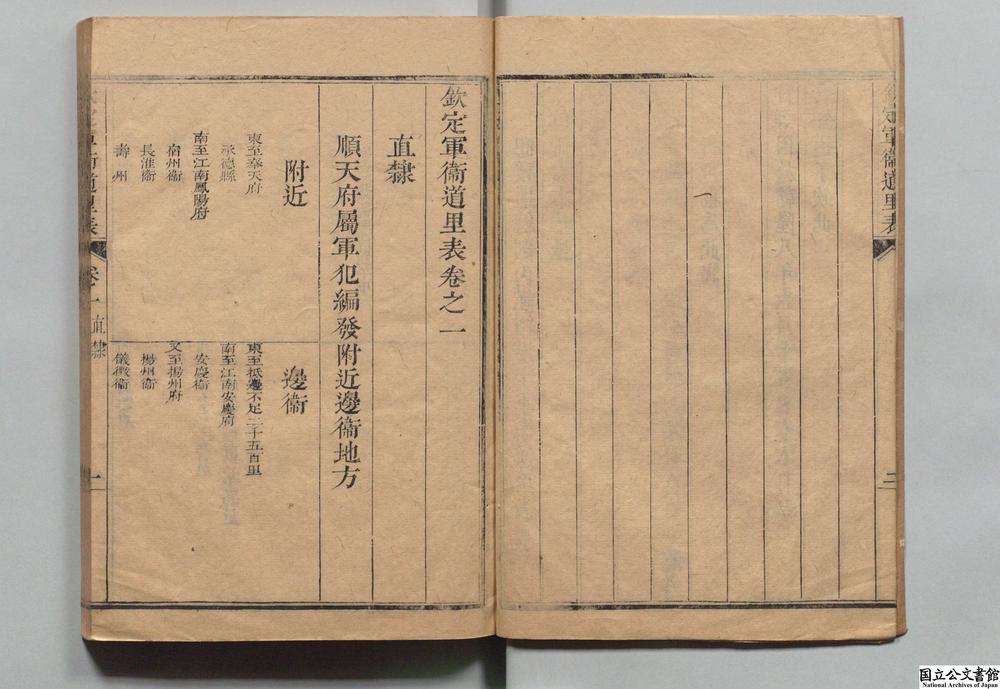 欽定軍衞道里表
二
欽定軍衞道里表卷之一
直隸
順天府屬軍犯編發附近邊衞地方
附近
東至奉天府
承德縣
南至江南鳳陽府
宿州衞
長淮衞
壽州
邊衞
東至抵邊不足二千五百里
南至江南安慶府
安慶衞
又至揚州府
揚州衞
儀徵衞
軍衞道里表
卷一直隸
一
国立公文書館
National Archives of Japan